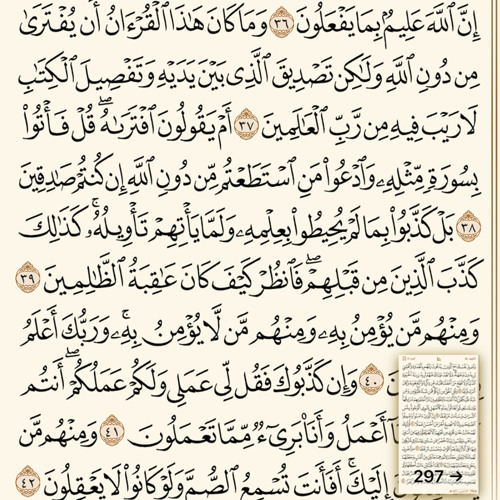 إِنَّ ٱللَّهَ عَلِيمٌۢ بِمَا يَفْعَلُونَ ٣٦ وَمَا كَانَ هَـٰذَا ٱلْقُرْءَانُ أَن يُفْتَرَىٰ
مِن دُونِ ٱللَّهِ وَلَـٰكِن تَصْدِيقَ ٱلَّذِى بَيْنَ يَدَيْهِ وَتَفْصِيلَ ٱلْكِتَـٰبِ
لَا رَيْبَ فِيهِ مِن رَّبِّ ٱلْعَـٰلَمِينَ ٣٧ أَمْ يَقُولُونَ ٱفْتَرَىٰهُ ۖ قُلْ فَأْتُوا۟
بِسُورَةٍ مِّثْلِهِۦ وَٱدْعُوا۟ مَنِ ٱسْتَطَعْتُم مِّن دُونِ ٱللَّهِ إِن كُنتُمْ صَـٰدِقِينَ
٣٨ بَلْ كَذَّبُوا۟ بِمَا لَمْ يُحِيطُوا۟ بِعِلْمِهِۦ وَلَمَّا يَأْتِهِمْ تَأْوِيلُهُۥ ۚ كَذَٰلِكَ
كَذَّبَ ٱلَّذِينَ مِن قَبْلِهِمْ ۖ فَٱنظُرْ كَيْفَ كَانَ عَـٰقِبَةُ ٱلظَّـٰلِمِينَ ٣٩
وَمِنْهُم مَّن يُؤْمِنُ بِهِۦ وَمِنْهُم مَّن لَّا يُؤْمِنُ بِهِۦ ۚ وَرَبُّكَ أَعْلَمُ
٤٠ وَإِن كَذَّبُوكَ فَقُل لِّى عَمَلِى وَلَكُمْ عَمَلُكُمْ ۖ أَنتُم
أَعْمَلُ وَأَنَا۠ بَرِىٓءٌ مِّمَّا تَعْمَلُونَ ٤١ وَمِنْهُم مَّن
إِلَيْكَ ۚ أَفَأَنتَ تُسْمِعُ ٱلصُّمَّ وَلَوْ كَانُوا۟ لَا يَعْقِلُونَ ٤٢
297 →